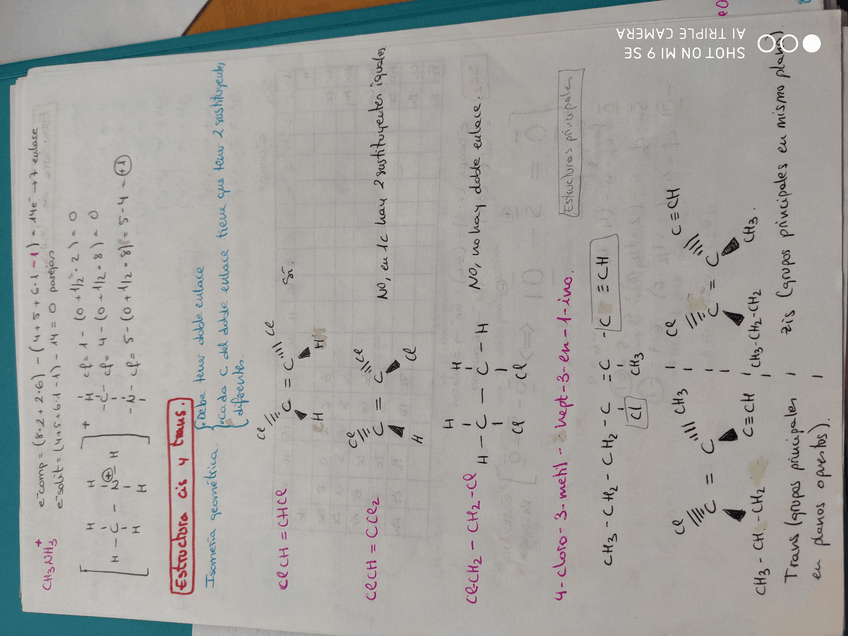 CH₃NH₃⁺ e⁻comp = (8·2 + 2·6) - (4 + 5 + 6·1 - 1) = 14e⁻ → 7 enlace
e⁻solit = (4+5+6·1-1) - 14 = 0 parejas
H H
H - C - N - H
H H
+
H cf = 1 - (0 + 1/2 · 2) = 0
- C - cf = 4 - (0 + 1/2 · 8) = 0
- N - cf = 5 - (0 + 1/2 · 8) = 5 - 4 = +1
Estructura cis y trans.
Isomería geométrica.
· Debe tener doble enlace
· cada C del doble enlace tiene que tener 2 sustituyentes
diferentes.
ClCH = CHCl
Cl Cl
C = C
H H
Sí.
ClCH = CCl₂
Cl Cl
C = C
H Cl
NO, en 1C hay 2 sustituyentes iguales
Cl-CH₂ - CH₂-Cl
H H
H - C - C - H
Cl Cl
NO, no hay doble enlace.
4-cloro-3-metil-hept-3-en-1-ino.
Estructuras principales
CH₃ - CH₂ - CH₂ - C = C - C ≡ CH
Cl CH₃
Cl CH₃
C = C
CH₃ - CH₂ - CH₂ C ≡ CH
Cl C ≡ CH
C = C
CH₃-CH₂-CH₂ CH₃.
Trans (grupos principales
en planos opuestos).
zis (grupos principales en mismo plano).
SHOT ON MI 9 SE
AI TRIPLE CAMERA